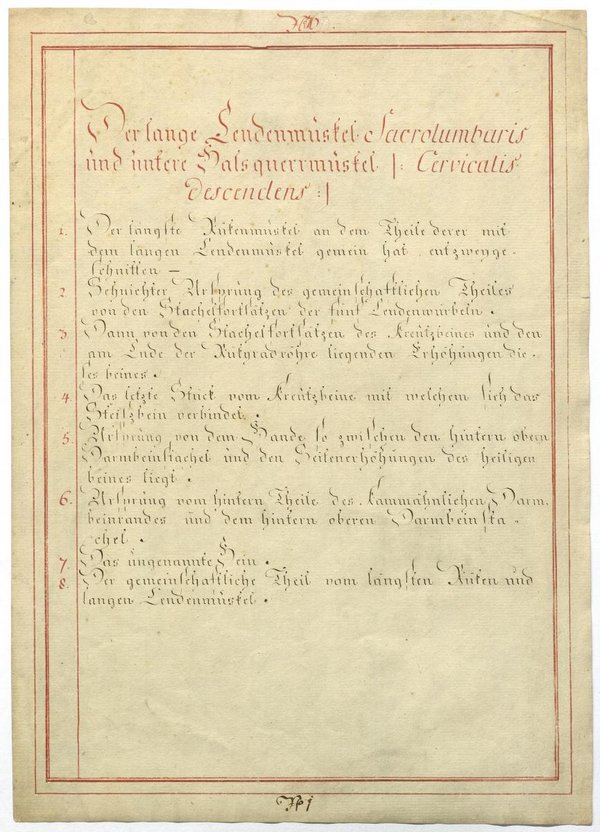 Der lange Lendenmüskel Sacrolumbaris
und untere Halsquerrmüskel |: Cervicalis
descendens :|
1. Der längste Rükenmüskel an dem Theile derer mit
dem langen Lendenmüskel gemein hat, entzweyge-
schnitten —
2. Sehnichter Ursprüng des gemeinschaftlichen Theiles
von den Stachelfortsätzen der fünf Lendenwürbeln.
3. Dann von den Stachelfortsätzen des Kreützbeines und den
am Ende der Rükgradröhre liegenden Erhöhüngen die-
ses beines.
4. Das letzte Stück vom Kreützbeine mit welchem sich das
Steißbein verbindet.
5. Ursprüng von dem Bande so zwischen den hintern obern
Darmbeinstachel und den Seitenerhöhüngen des heiligen
beines liegt.
6. Ursprüng vom hintern Theile des kammähnlichen Darm-
beinrandes und dem hintern oberen Darmbeinsta-
chel.
7. Das üngenannte Bein.
8. Der gemeinschaftliche Theil vom längsten Rüken und
langen Lendenmüskel.